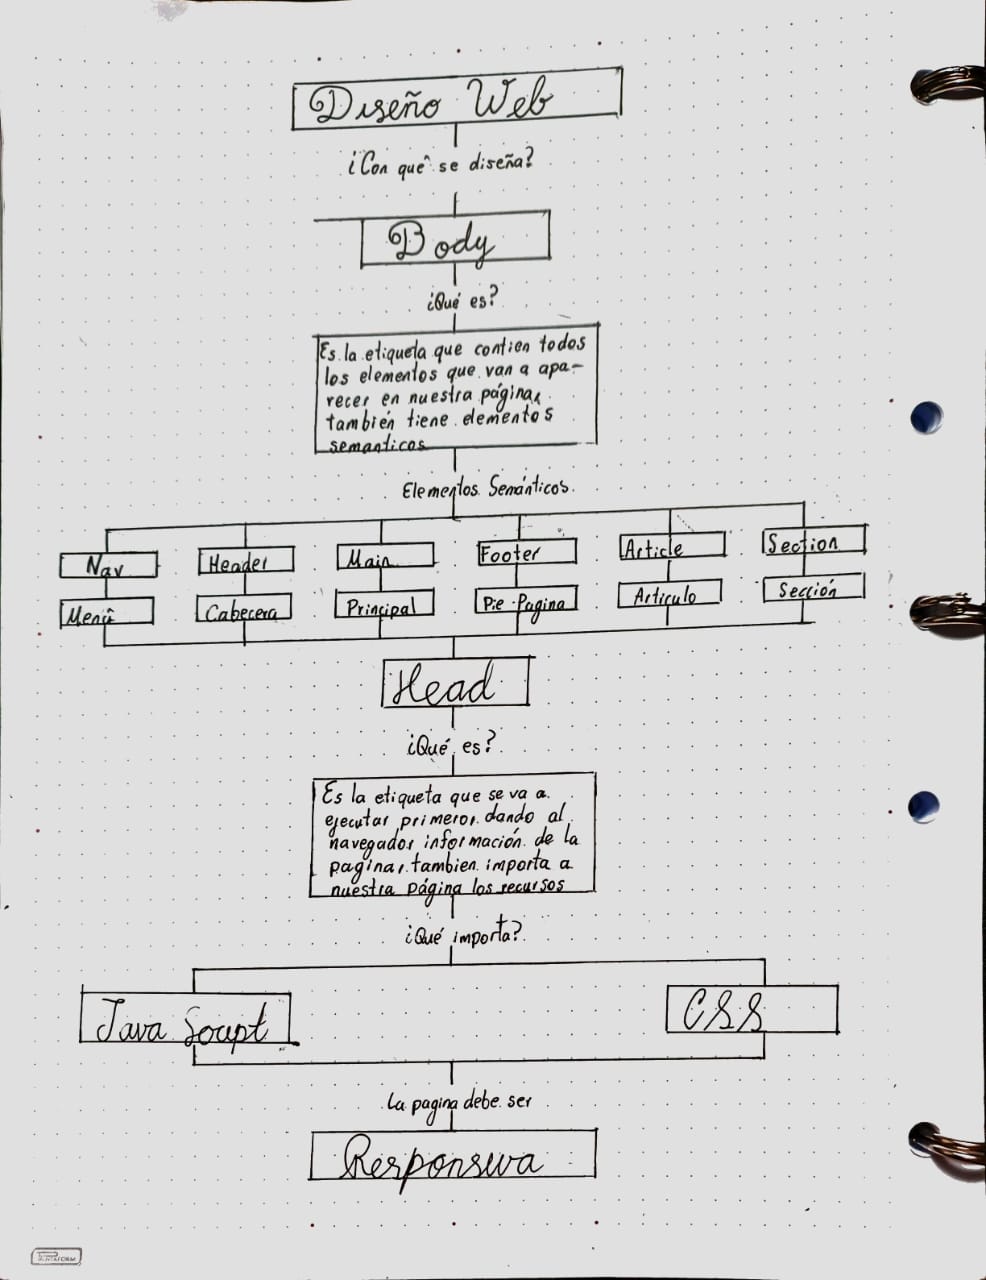 Diseño Web
¿Con qué se diseña?
Body
¿Qué es?
Es la etiqueta que contien todos
los elementos que van a apa-
recer en nuestra página,
también tiene elementos
semanticos
Elementos Semánticos.
Nav Header Main Footer Article Section
Menú Cabecera Principal Pie-Pagina Artículo Sección
Head
¿Qué es?
Es la etiqueta que se va a
ejecutar primero, dando al
navegador información de la
pagina, tambien importa a
nuestra página los recursos
¿Qué importa?
Java Script CSS
La pagina debe ser
Responsiva